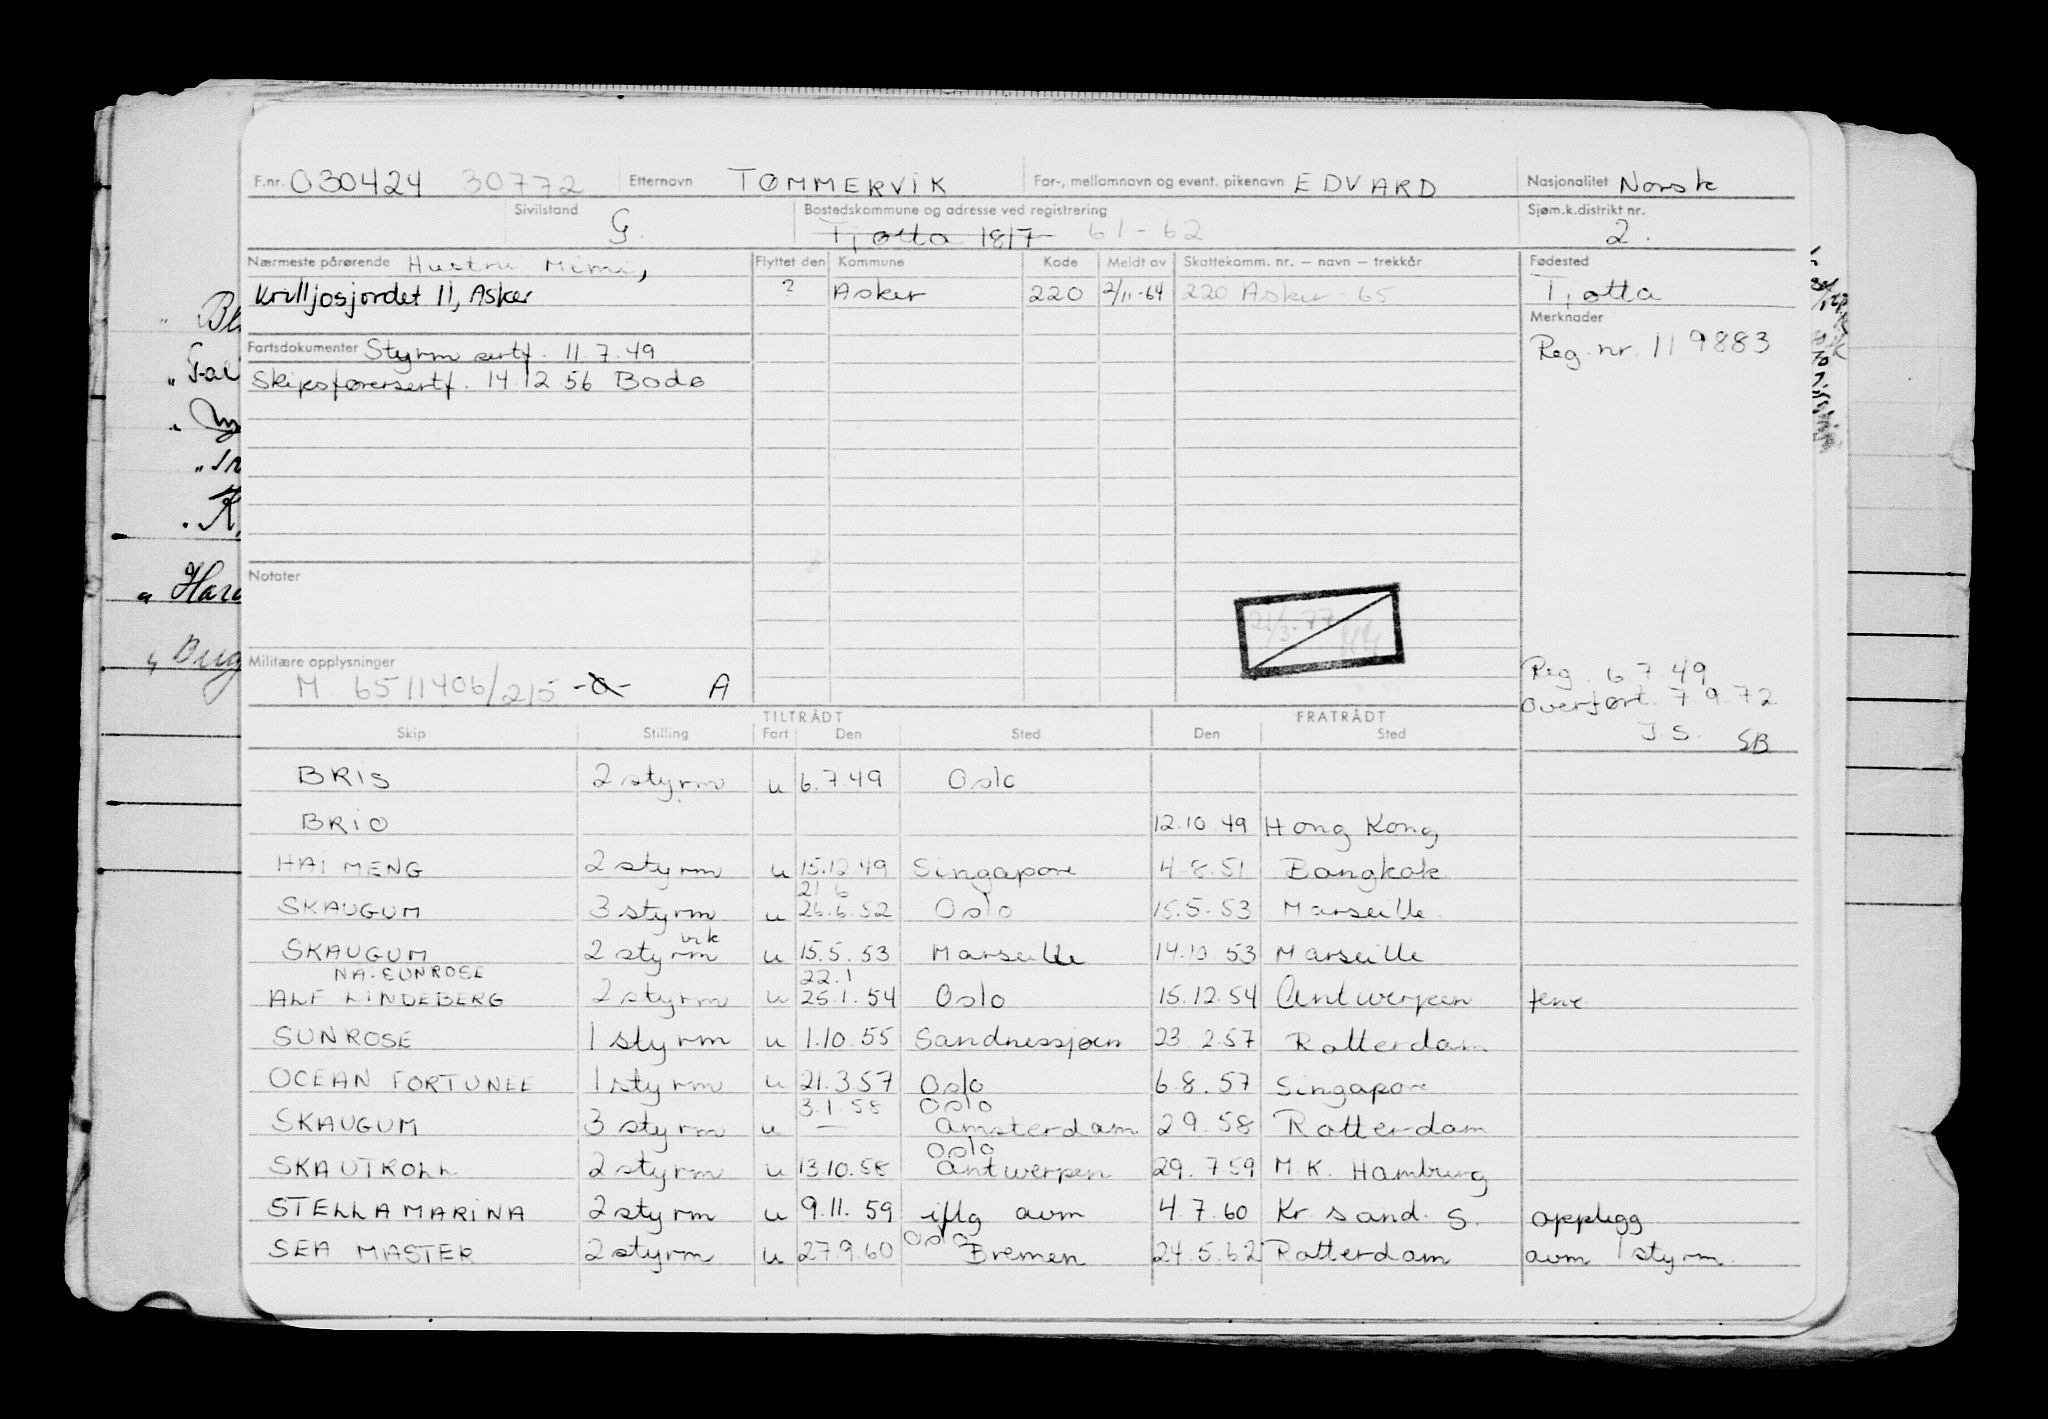 F.nr. 030424 30772 Etternavn TØMMERVIK For-, mellomnavn og event. pikenavn EDVARD Nasjonalitet Norsk
Sivilstand G. Bostedskommune og adresse ved registrering Tjøtta 1817 61-62 Sjøm.k.distrikt nr. 2.
Nærmeste pårørende Hustru Mimi, Flyttet den Kommune Kode Meldt av Skattekomm. nr. – navn – trekkår Fødested
Krilljosjordet 11, Asker ? Asker 220 2/11-64 220 Asker 65 Tjøtta
Merknader
Fartsdokumenter Styrm sertf. 11.7.49 Reg. nr. 119883
Skipsførersertf. 14.12 56 Bodø
Notater
21/3.77
Militære opplysninger Reg. 6 7 49
M 65 11406/215 -a- A overført. 7.9.72
J.S. SB
TILTRÅDT FRATRÅDT
Skip Stilling Fart Den Sted Den Sted
BRIS 2 styrm u 6.7.49 Oslo
BRIO 12.10.49 Hong Kong
HAI MENG 2 styrm u 15.12 49 Singapore 4.8.51 Bangkok
21 6
SKAUGUM 3 styrm u 26.6.52 Oslo 15.5.53 Marseille
vik
SKAUGUM 2 styrm u 15.5.53 Marseille 14.10 53 Marseille
NA. SUNROSE 22.1
ALF LINDEBERG 2 styrm u 25.1.54 Oslo 15.12.54 Antwerpen ferie
SUNROSE 1 styrm u 1.10.55 Sandnessjøen 23 2.57 Rotterdam
OCEAN FORTUNEE 1 styrm u 21.3.57 Oslo 6.8.57 Singapore
3.1.58 Oslo
SKAUGUM 3 styrm u — Amsterdam 2 9.58 Rotterdam
Oslo
SKAUTROLL 2 styrm u 13.10.58 Antwerpen 29.7.59 M.K. Hamburg
STELLA MARINA 2 styrm u 9.11.59 iflg avm 4.7.60 Kr. sand. S. opplegg
Oslo
SEA MASTER 2 styrm u 27.9.60 Bremen 24.5.62 Rotterdam avm 1 styrm.